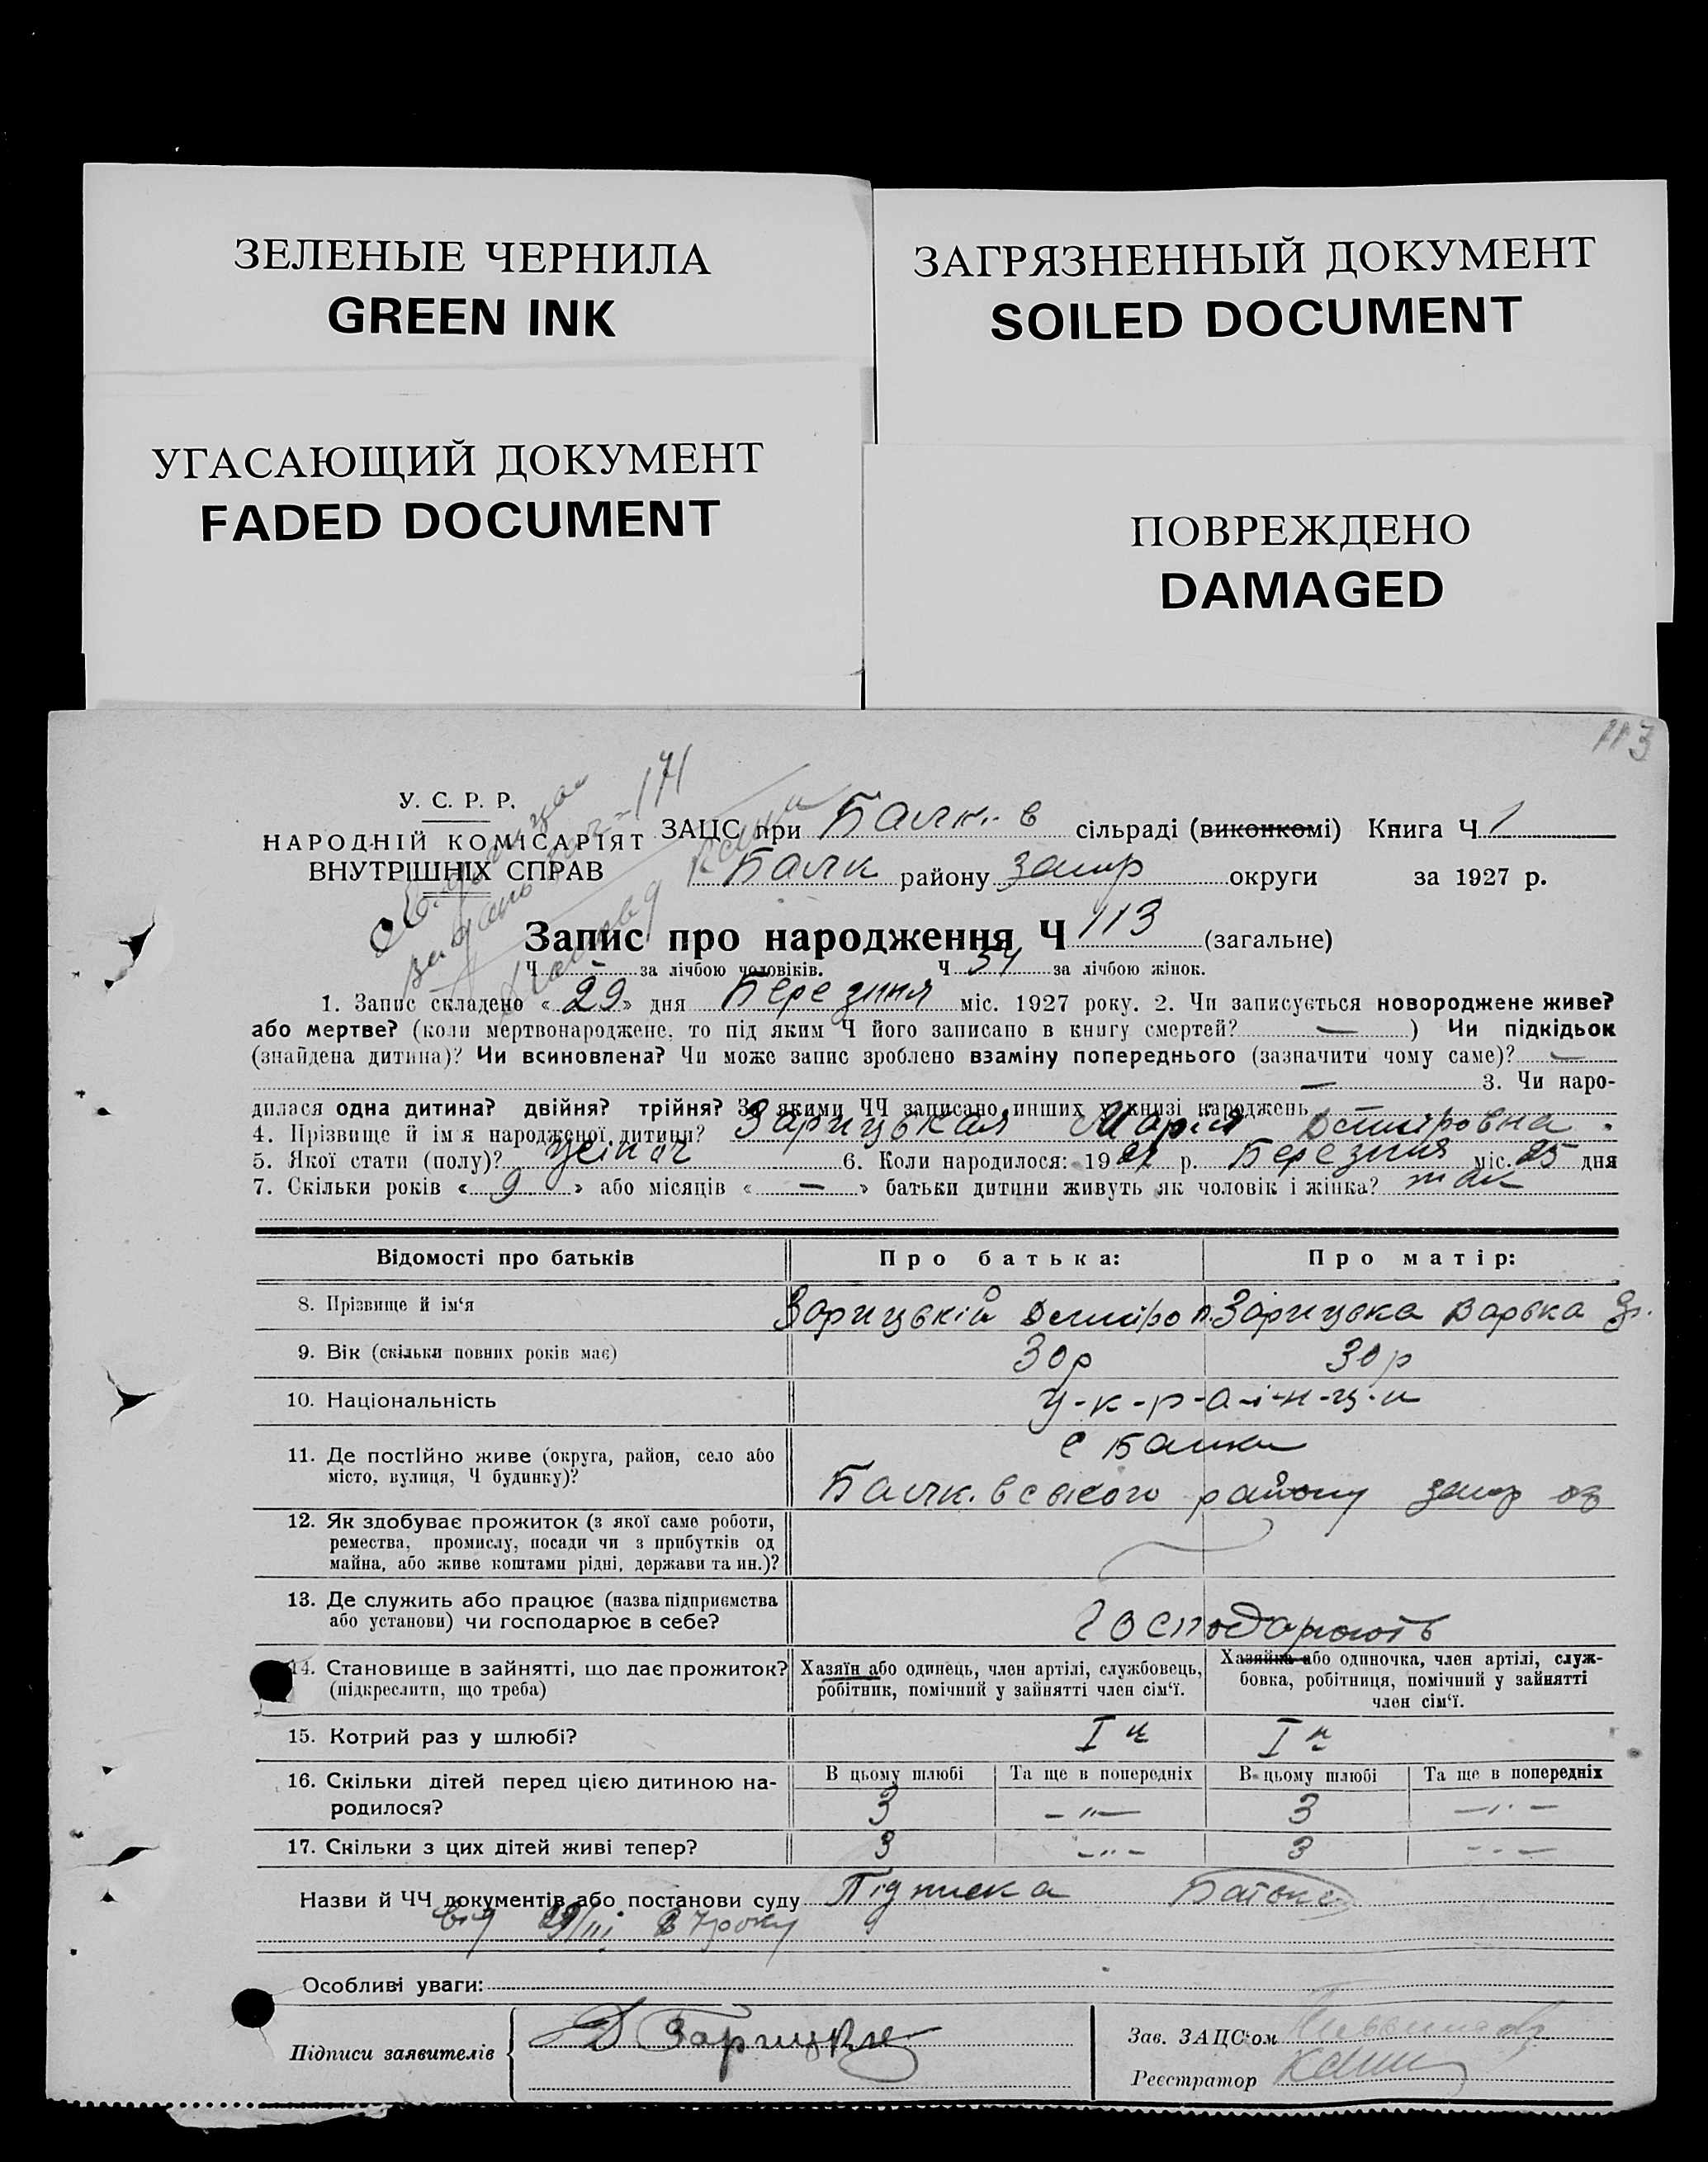 ЗЕЛЕНЫЕ ЧЕРНИЛА
GREEN INK
ЗАГРЯЗНЕННЫЙ ДОКУМЕНТ
SOILED DOCUMENT
УГАСАЮЩИЙ ДОКУМЕНТ
FADED DOCUMENT
ПОВРЕЖДЕНО
DAMAGED
113
У. С. Р. Р.
НАРОДНІЙ КОМІСАРІЯТ
ВНУТРІШНІХ СПРАВ
ЗАЦС при Балк. в сільраді (виконкомі) Книга Ч 1
Балк району Запор округи за 1927 р.
Запис про народження Ч 113 (загальне)
Ч - за лічбою чоловіків. Ч 54 за лічбою жінок.
1. Запис складено « 29 » дня Березння міс. 1927 року. 2. Чи записується новороджене живе?
або мертве? (коли мертвонароджене, то під яким Ч його записано в книгу смертей? — ) Чи підкідьок
(знайдена дитина)? Чи всиновлена? Чи може запис зроблено взаміну попереднього (зазначити чому саме)? —
— 3. Чи наро-
дилася одна дитина? двійня? трійня? За якими ЧЧ записано инших у книзі народжень
4. Прізвище й ім'я народженої дитини? Зарицькая Марія
5. Якої стати (полу)? 6. Коли народилося: 1927 р. Березння міс. 25 дня
7. Скільки років « 9 » або місяців « — » батьки дитини живуть як чоловік і жінка? так
Відомості про батьків Про батька: Про матір:
8. Прізвище й ім'я Зарицький Зарицька Варька
9. Вік (скільки повних років має) 30 р 30 р
10. Національність у-к-р-а-ї-н-ц-и
11. Де постійно живе (округа, район, село або
місто, вулиця, Ч будинку)? с Балки
Балк. вського району запор ок
12. Як здобуває прожиток (з якої саме роботи,
ремества, промислу, посади чи з прибутків од
майна, або живе коштами рідні, держави та ин.)?
13. Де служить або працює (назва підприємства
або установи) чи господарює в себе? господарюють
14. Становище в зайнятті, що дає прожиток?
(підкреслити, що треба)
Хазяїн або одинець, член артілі, службовець,
робітник, помічний у зайнятті член сім'ї.
Хазяйка або одиночка, член артілі, служ-
бовка, робітниця, помічний у зайнятті
член сім'ї.
15. Котрий раз у шлюбі? I й I й
16. Скільки дітей перед цією дитиною на-
родилося?
В цьому шлюбі Та ще в попередніх В цьому шлюбі Та ще в попередніх
3 -"- 3 -"-
17. Скільки з цих дітей живі тепер? 3 -"- 3 -"-
Назви й ЧЧ документів або постанови суду Підписка Батька
від 29/III 27 року
Особливі уваги:
Підписи заявителів Д Зарицкий
Зав. ЗАЦС'ом
Реєстратор